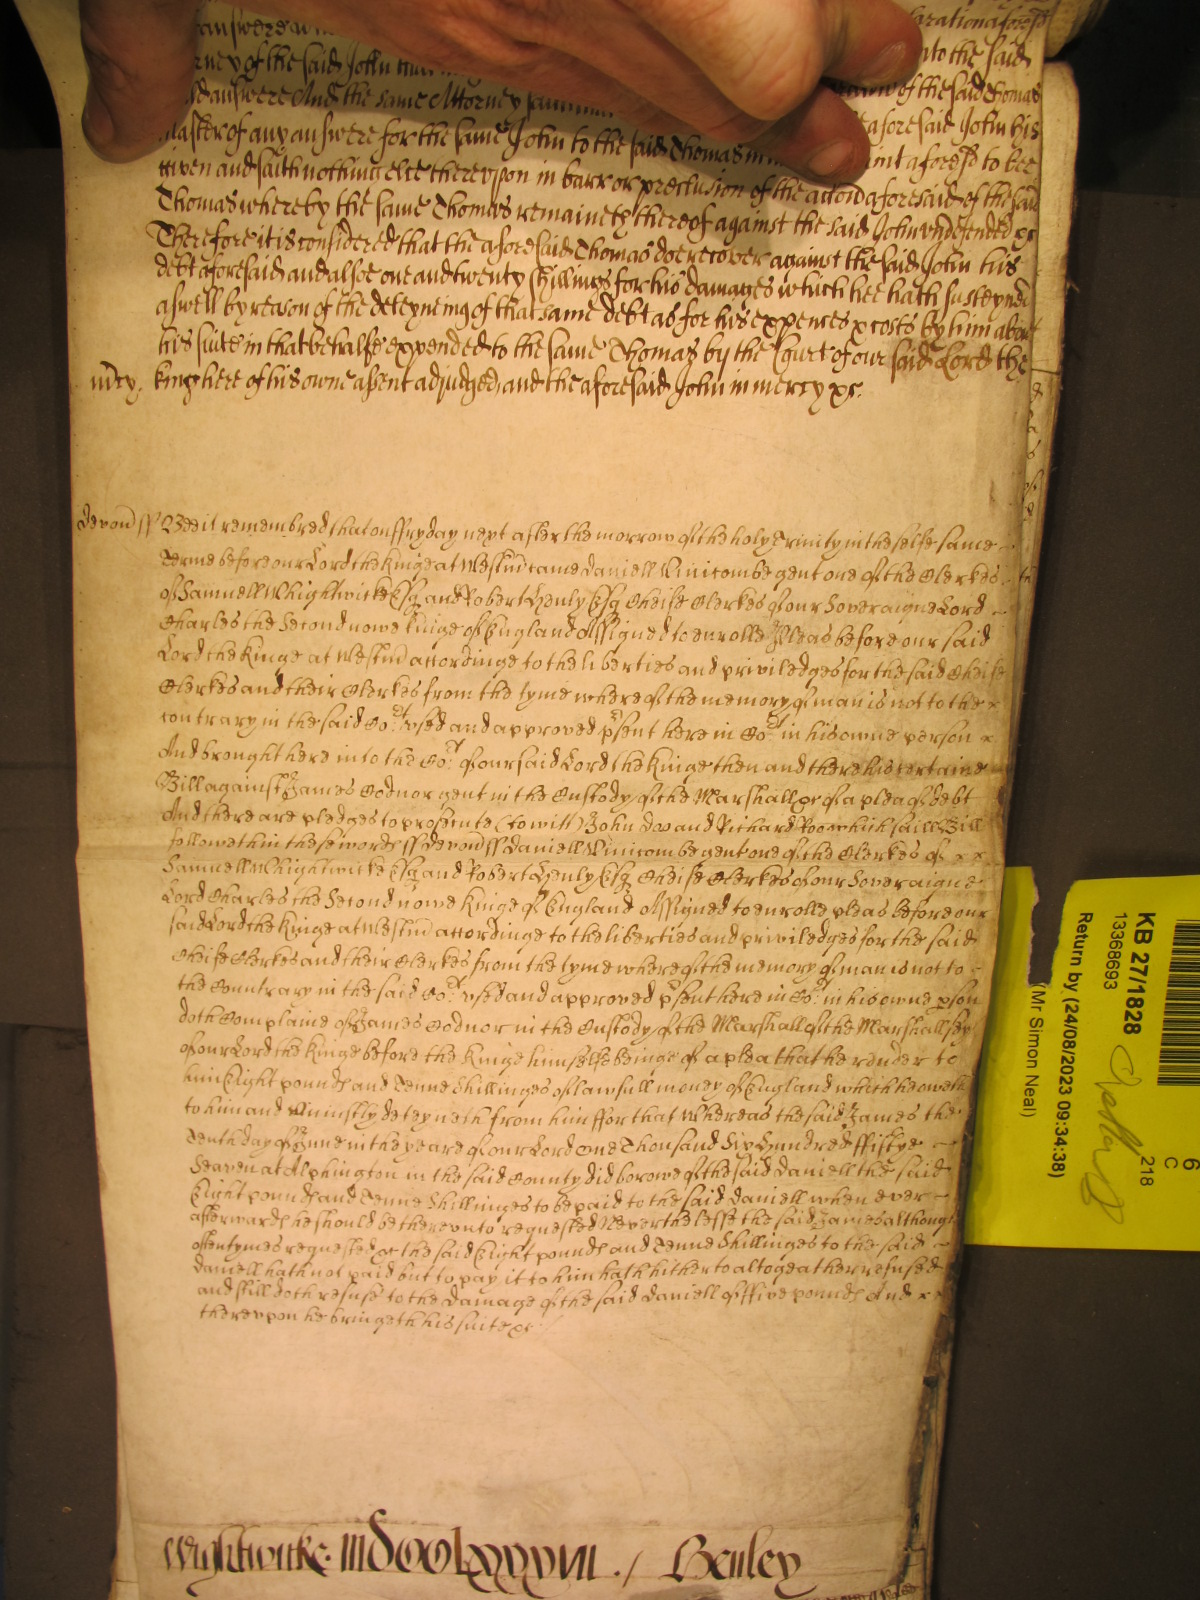 answere
aration afores̃d
rney of the said John
nto the said
answere And the same Attorney
of the said Thomas
master of any answere for the same John to the said Thomas in
aforesaid John his
given and saith nothing else therevpon in barr or preclusion of the accõn aforesaid of the said
int afores̃d to bee
Thomas whereby the same Thomas remaineth thereof against the said John vndefended &c
Therefore it is considered that the aforesaid Thomas doe recover against the said John his
debt aforesaid and alsoe one and twenty shillings for his damages which hee hath susteyned
aswell by reason of the deteyneing of that same debt as for his expences & costs by him about
his suite in that behalfe expended to the same Thomas by the Court of our said Lord the
m̃cy. King here of his owne assent adjudged, and the aforesaid John in mercy &c.
Devon ss Bee it remembred that on ffryday next after the morrow of the holy Trinity in the selfe same
Terme before our Lord the Kinge at Westm̃ came Daniell Winicombe gent one of the Clerkes
of Samuell Whightwicke Esq and Robert Henly Esq Cheife Clerkes of our Soveraigne Lord
Charles the Second nowe kinge of England Assigned to enrolle Pleas before our said
Lord the Kinge at Westm̃ accordinge to the liberties and priviledges for the said Cheife
Clerkes and their Clerkes from the tyme whereof the memory of man is not to the
contrary in the said Co:rt vsed and approved p̃sent here in Co:rt in his owne person
And brought here into the Co:rt of our said Lord the Kinge then and there his certaine
Bill against James Codnor gent in the Custody of the Marshall &c of a plea of debt
And there are pledges to prosecute (to witt) John Doo and Richard Roo which said Bill
followeth in these words ss Devon ss Daniell Winicombe gent one of the Clerkes of
Samuell Whightwicke Esq and Robert Henly Esq Cheife Clerkes of our Soveraigne
Lord Charles the Second nowe Kinge of England Assigned to enrolle pleas before our
said Lord the Kinge at Westm̃ accordinge to the liberties and priviledges for the said
Cheife Clerkes and their Clerkes from the tyme whereof the memory of man is not to
the Countrary in the said Co:rt vsed and approved p̃sent here in Co:rt in his owne pson
doth Complaine of James Codnor in the Custody of the Marshall of the Marshallsey
of our Lord the Kinge before the Kinge himselfe beinge of a plea that he render to
him Eight pounds and Tenne Shillinges of lawfull money of England which he oweth
to him and Uniustly deteyneth from him ffor that Whereas the said James the
Tenth day of June in the yeare of our Lord One Thousand Six Hundred ffiftye
Seaven at Alphington in the said County did borowe of the said Daniell the said
Eight pounds and Tenne Shillinges to be paid to the said Daniell when ever
afterwards he should be therevnto requested Neverthelesse the said James although
oftentymes requested &c the said Eight pounds and Tenne Shillinges to the said
Daniell hath not paid but to pay it to him hath hitherto altogeather refused
and still doth refuse to the Damage of the said Daniell of ffive pounds And
therevpon he bringeth his suite &c
Wightwicke. Henley
KB 27/1828
13368693
Return by (24/08/2023 09:34:38)
(Mr Simon Neal)
218
C
6